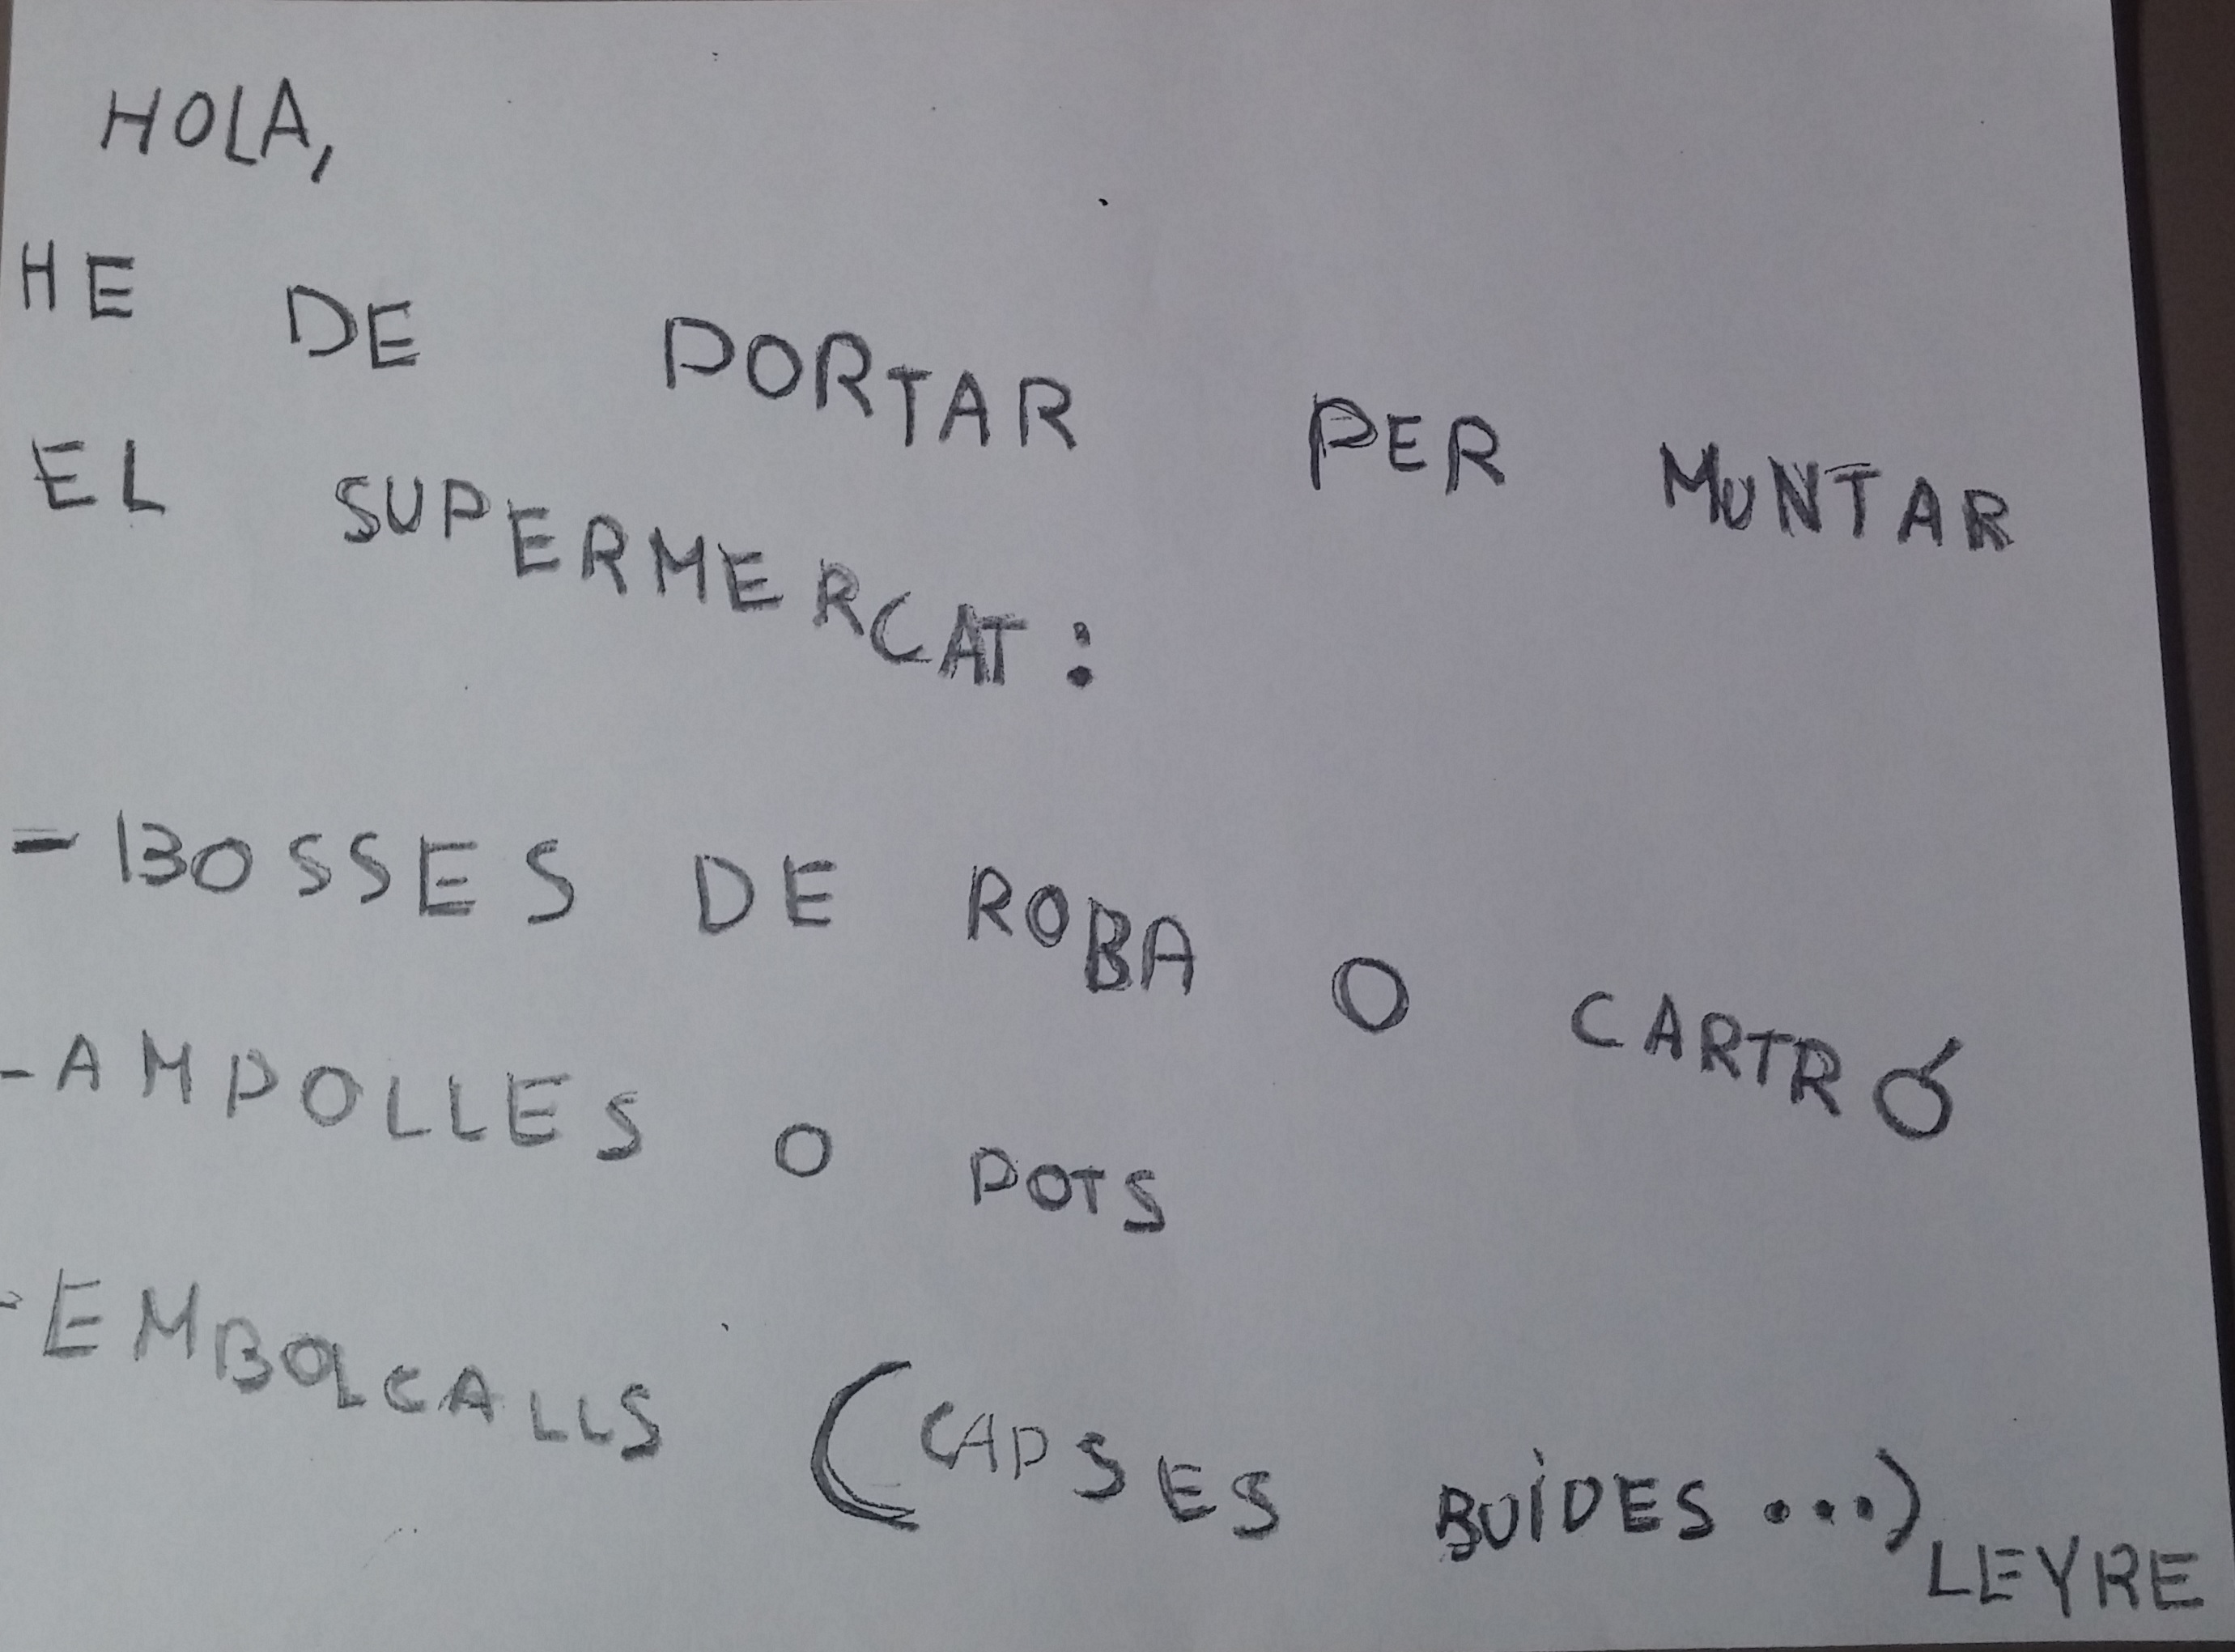 HOLA,
HE DE PORTAR PER MUNTAR
EL SUPERMERCAT:
- BOSSES DE ROBA O CARTRÓ
- AMPOLLES O POTS
- EMBOLCALLS (CAPSES BUIDES...)
LEYRE